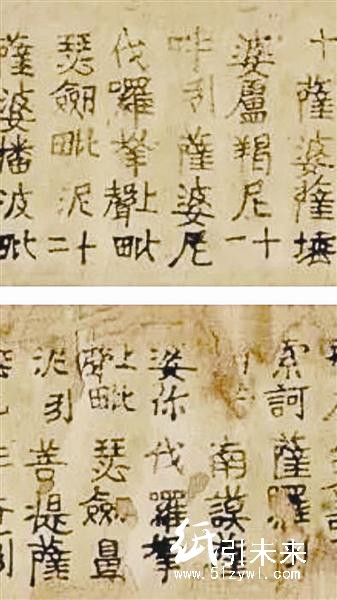 十薩婆薩埵
婆盧羯尼十一
吽引薩婆尼
伐囉拏上聲毗
瑟劒毗泥十二
薩婆播波毗
索訶薩羅
南謨
婆你伐囉拏
毗瑟劒鼻
泥引菩提薩
纸引未来
www.51zywl.com